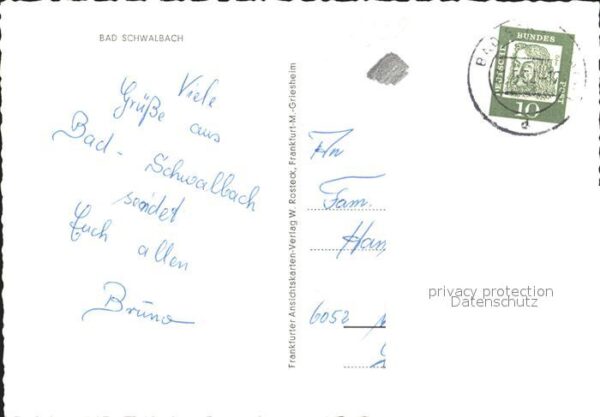 BAD SCHWALBACH
Viele
Grüße aus
Bad-Schwalbach
sendet
Euch allen
Bruno
Frankfurter Ansichtskarten-Verlag W. Rosteck, Frankfurt-M.-Griesheim
An
Fam.
Han
6052
DEUTSCHE
BUNDES
POST
10
BAD
d
privacy protection
Datenschutz